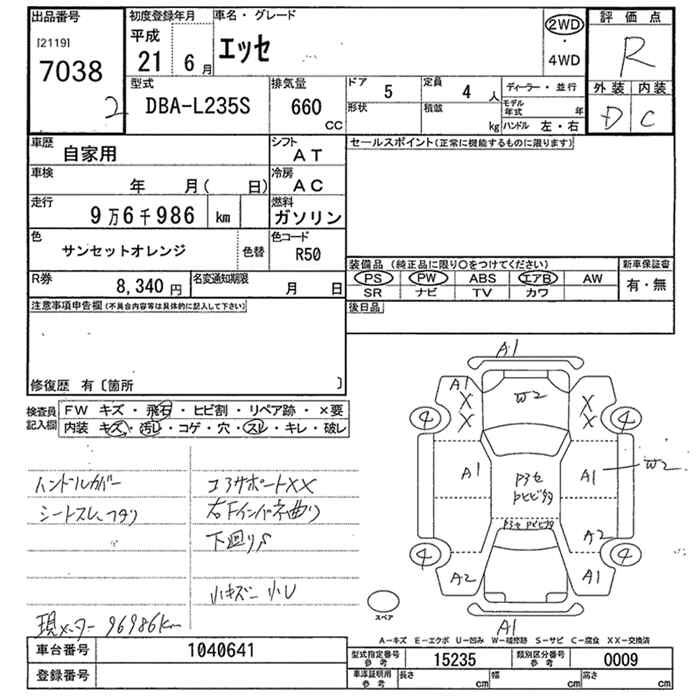 出品番号
[2119]
7038
2
初度登録年月
平成
21年 6月
車名・グレード
エッセ
2WD
・
4WD
評価点
R
外装 内装
D C
型式
DBA-L235S
排気量
660
CC
ドア
5
形状
定員
4 人
積載
kg
ディーラー・並行
モデル年式 年
ハンドル 左・右
車歴
自家用
シフト
AT
車検
年 月( 日)
冷房
AC
走行
9万6千986 km
燃料
ガソリン
色
サンセットオレンジ
色替
色コード
R50
R券
8,340円
名変通知期限
月 日
セールスポイント(正常に機能するものに限ります)
装備品(純正品に限り○をつけてください)
PS PW ABS エアB AW
SR ナビ TV カワ
新車保証書
有・無
後日品
注意事項申告欄(不具合内容等は具体的に記入して下さい)
修復歴 有〔箇所 〕
検査員記入欄
FW キズ・飛石・ヒビ割・リペア跡・×要
内装 キズ・汚レ・コゲ・穴・スレ・キレ・破レ
ハンドルカバー
シートスレ、フタリ
現メーター 96986km
コアサポートXX
右Fインパネ曲り
下廻りS
小キズ 小U
A1
A1
X
X
W2
X
X
4
4
A1
P3セ
Pヒビ多
A1
W2
P3セ Pヒビ多
A2
4
4
A2
A1
A1
スペア
A-キズ E-エクボ U-凹み W-補修跡 S-サビ C-腐食 XX-交換済
車台番号
1040641
登録番号
型式指定番号 参考
15235
類別区分番号 参考
0009
車漆指定番号 参考
長さ cm
幅 cm
高さ cm